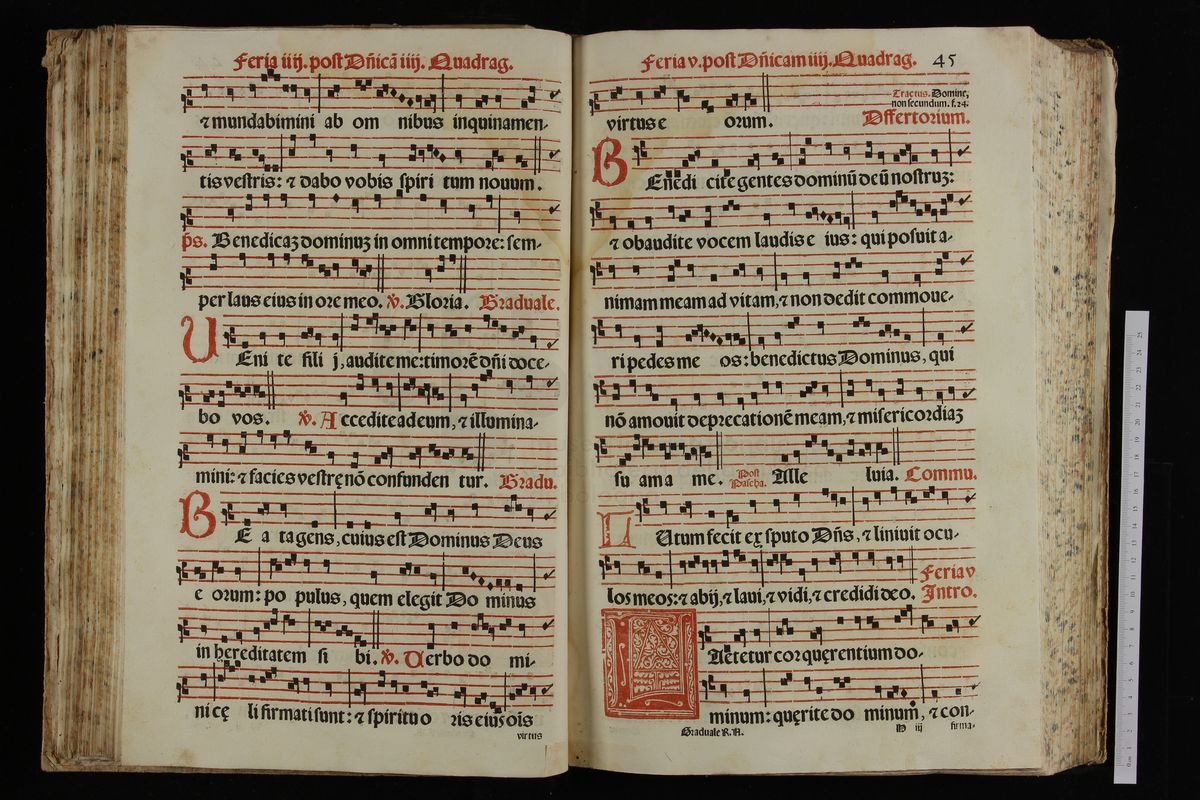 Feria iiij. post Dñicã iiij. Quadrag.
⁊ mundabimini ab om nibus inquinamen-
tis vestris: ⁊ dabo vobis spiri tum nouum.
p̃s. Benedicaꝫ dominuꝫ in omni tempore: sem-
per laus eius in ore meo. ℣. Gloria. Graduale.
UEni te fili j, audite me: timorẽ dñi doce-
bo vos. ℣. Accedite ad eum, ⁊ illumina-
mini: ⁊ facies vestrę nõ confunden tur. Gradu.
BE a ta gens, cuius est Dominus Deus
e orum: po pulus, quem elegit Do minus
in hęreditatem si bi. ℣. Uerbo do mi-
ni cę li firmati sunt: ⁊ spiritu o ris eius oĩs
virtus
Feria v. post Dñicam iiij. Quadrag. 45
virtus e orum. Tractus. Domine,
non secundum. f.24.
Offertorium.
BEnedi cite gentes dominũ deũ nostruꝫ:
⁊ obaudite vocem laudis e ius: qui posuit a-
nimam meam ad vitam, ⁊ non dedit commoue-
ri pedes me os: benedictus Dominus, qui
nõ amouit deprecationẽ meam, ⁊ misericordiaꝫ
su am a me. Post Pascha. Alle luia. Commu.
LUtum fecit ex sputo Dñs, ⁊ liniuit ocu-
los meos: ⁊ abij, ⁊ laui, ⁊ vidi, ⁊ credidi deo. Feria v
Intro.
LAetetur cor quęrentium do-
minum: quęrite do minum, ⁊ con-
Graduale R.A. iij firma-